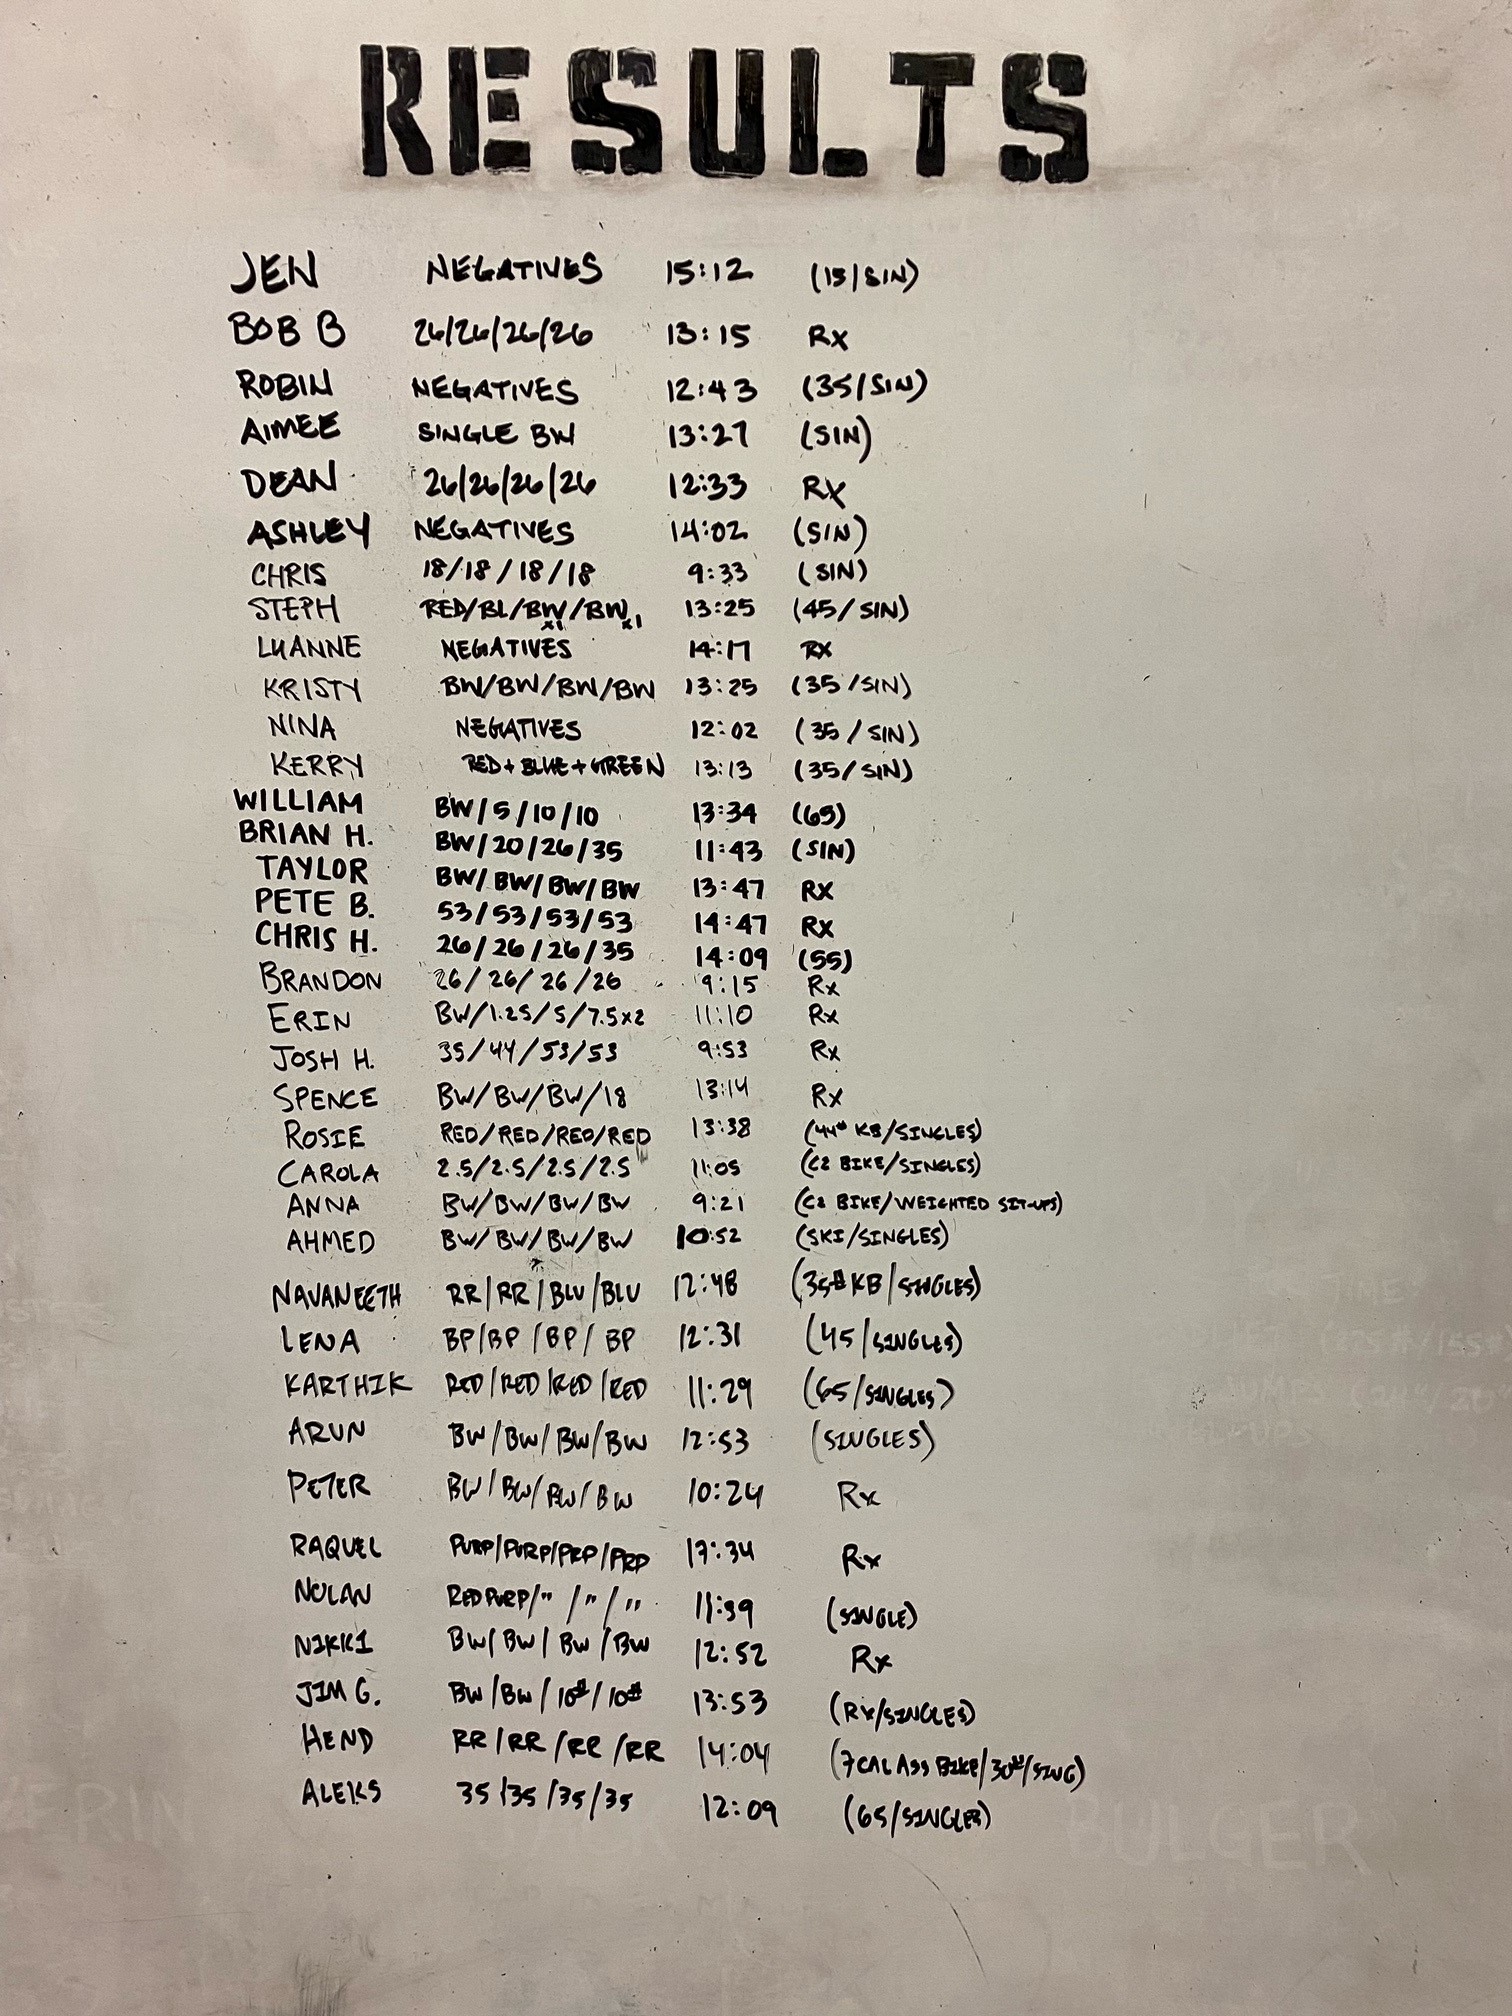 RESULTS
JEN NEGATIVES 15:12 (15/SIN)
BOB B 26/26/26/26 13:15 Rx
ROBIN NEGATIVES 12:43 (35/SIN)
AIMEE SINGLE BW 13:27 (SIN)
DEAN 26/26/26/26 12:33 RX
ASHLEY NEGATIVES 14:02 (SIN)
CHRIS 18/18/18/18 9:33 (SIN)
STEPH RED/BL/BW x1/BW x1 13:25 (45/SIN)
LUANNE NEGATIVES 14:17 RX
KRISTY BW/BW/BW/BW 13:25 (35/SIN)
NINA NEGATIVES 12:02 (35/SIN)
KERRY RED+BLUE+GREEN 13:13 (35/SIN)
WILLIAM BW/5/10/10 13:34 (65)
BRIAN H. BW/20/26/35 11:43 (SIN)
TAYLOR BW/BW/BW/BW 13:47 RX
PETE B. 53/53/53/53 14:47 RX
CHRIS H. 26/26/26/35 14:09 (55)
BRANDON 26/26/26/26 9:15 Rx
ERIN BW/1.25/5/7.5x2 11:10 Rx
JOSH H. 35/44/53/53 9:53 Rx
SPENCE BW/BW/BW/18 13:14 Rx
ROSIE RED/RED/RED/RED 13:38 (44# KB/SINGLES)
CAROLA 2.5/2.5/2.5/2.5 11:05 (C2 BIKE/SINGLES)
ANNA BW/BW/BW/BW 9:21 (C2 BIKE/WEIGHTED SIT-UPS)
AHMED BW/BW/BW/BW 10:52 (SKI/SINGLES)
NAVANEETH RR/RR/BLU/BLU 12:48 (35# KB/SINGLES)
LENA BP/BP/BP/BP 12:31 (45/SINGLES)
KARTHIK RED/RED/RED/RED 11:29 (65/SINGLES)
ARUN BW/BW/BW/BW 12:53 (SINGLES)
PETER BW/BW/BW/BW 10:24 Rx
RAQUEL PURP/PURP/PRP/PRP 17:34 Rx
NOLAN RED PURP/"/"/" 11:39 (SINGLE)
NIKKI BW/BW/BW/BW 12:52 Rx
JIM G. BW/BW/10#/10# 13:53 (RX/SINGLES)
HEND RR/RR/RR/RR 14:04 (7 CAL ASS BIKE/30#/SING)
ALEKS 35/35/35/35 12:09 (65/SINGLES)
BULGER